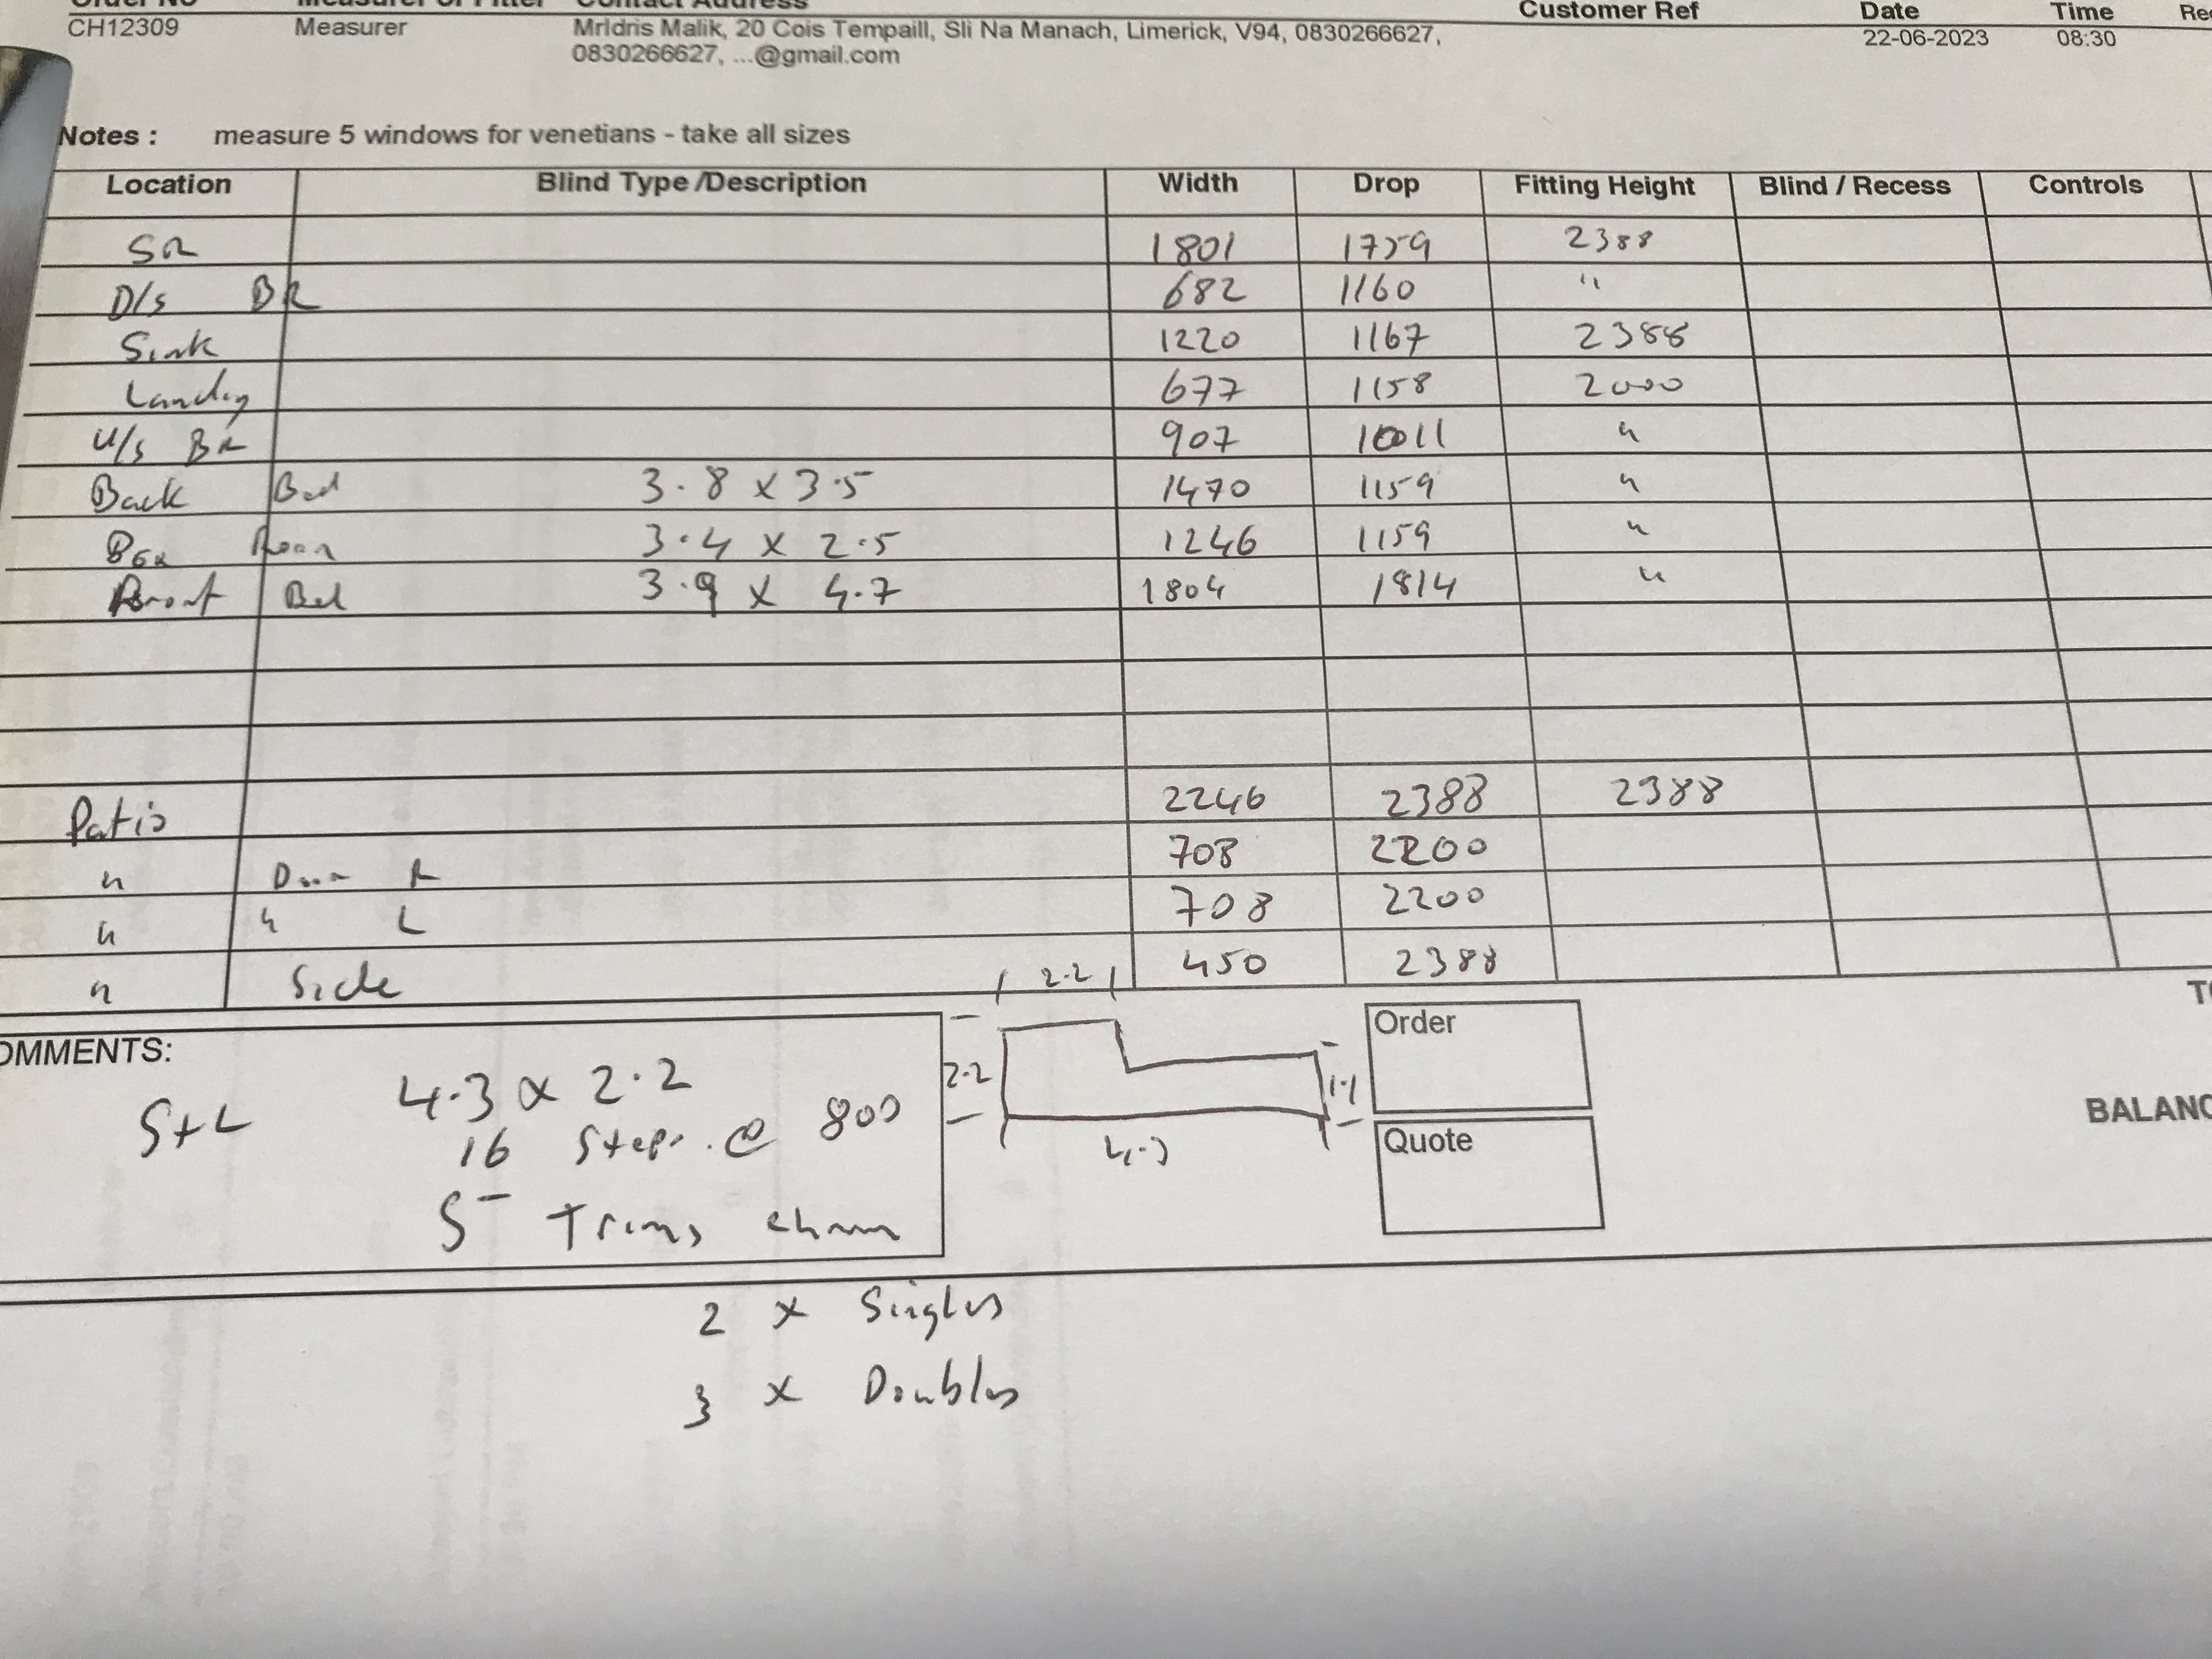 CH12309 Measurer MrIdris Malik, 20 Cois Tempaill, Sli Na Manach, Limerick, V94, 0830266627,
0830266627, ...@gmail.com
Customer Ref Date Time
22-06-2023 08:30
Notes : measure 5 windows for venetians - take all sizes
Location Blind Type /Description Width Drop Fitting Height Blind / Recess Controls
SR 1801 1759 2388
D/s BR 682 1160 "
Sink 1220 1167 2388
Landing 677 1158 2000
U/s BR 907 1011 "
Back Bed 3.8 x 3.5 1470 1159 "
Box Room 3.4 x 2.5 1246 1159 "
Front Bed 3.9 x 4.7 1804 1814 "
Patio 2246 2388 2388
" Door R 708 2200
" " L 708 2200
" Side 450 2388
2.2
OMMENTS:
S+L 4.3 x 2.2
16 Steps @ 800
5 Trims chrom
2.2 1.1
4.3
Order
Quote
BALANC
2 x Singles
3 x Doubles